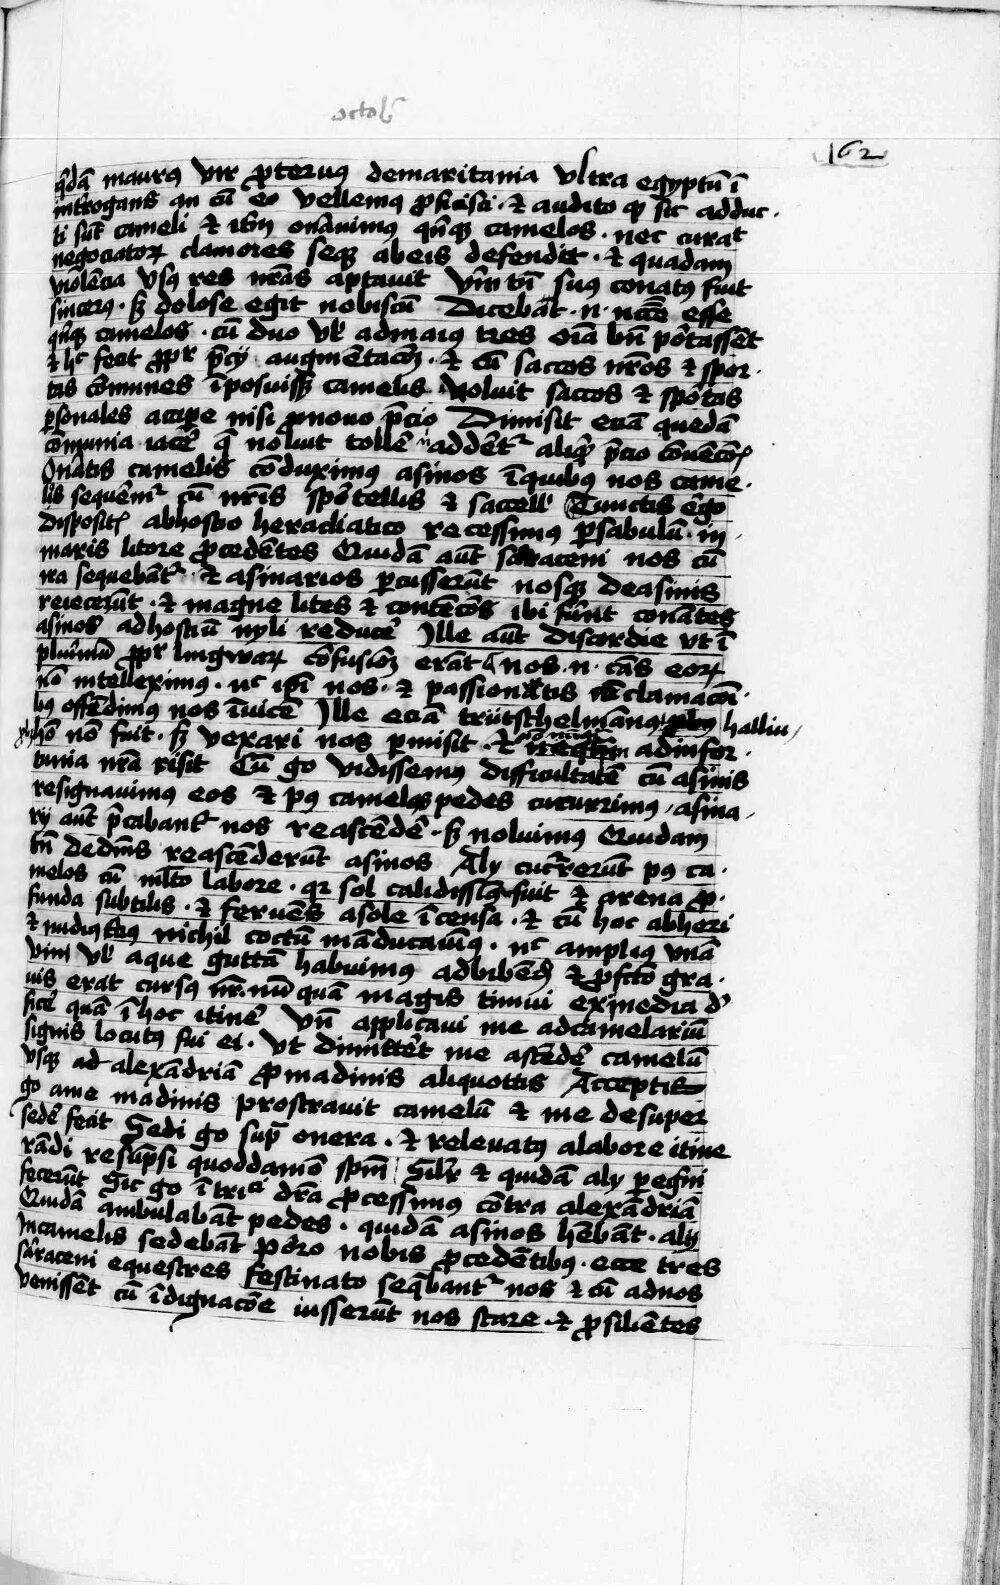 octob
162
q̄dā maurꝰ vir ꝓteruꝰ demaritania vltra egyptū ī
int̄rogans an cū eo vellemꝰ ꝓficisci · et audito qꝫ sic adduc ·
ti sūt cameli et itm̄ on̄auimus qn̄qꝫ camelos · nec curat
negociatoꝝ clamores seqꝫ abeis defendit · et quadam
violēcia vsqꝫ res nr̄as aptauit Vn̄ tn̄ suꝰ conatꝰ fuit
sincerꝰ · sꝫ dolose egit nobiscū Dicebat · n · nccē esse
qn̄qꝫ camelos · cū duo vl̄ admaiꝰ tres oīa bn̄ portassēt
et hͨ fecit ꝓpt̄ p̄cij augmētacōꝫ · et cū saccos nr̄os et spor ·
tas cōmunes īposuisꝫ camelis Noluit saccos et sportas
ꝑsonales accipe nisi ꝓnouo p̄cio Dimisit eciā quedā
cōmunia iacē q̄ noluit tollē n̄ addēt᷑ aliqͦ p̄cio
On̄atis camelis cōduximus asinos īquibus nos came ·
lis sequēm᷑ cū nr̄is sportellis et saccell̄ Cunctis ergo
dispositꝭ abhostio heracliatico recessimus ꝑsabulū · in
maris litore ꝓcedētes Quidā aūt sarraceni nos cū
ira sequebāt᷑ · et asinarios ꝑcusserūt nosqꝫ deasinis
reiecerūt · et magne lites et contēcōes ibi fūnt conātes
asinos adhostiū nyli reducē Ille aūt discordie vt ī
plurimū ꝓpt̄ lingwaꝝ cōfusionꝫ erāt nos · n · cās eoꝝ
nō intelleximus · nͨ ip̄i nos · et passionatis clamacōi ·
bꝰ offēdimus nos īuicē Ille eciā trütsthelmānus halliu
hō nō fuit · sꝫ vexari nos ꝑmisit · et adinfor ·
tunia nr̄a risit Cū go vidissemus difficultatē cū asinis
resignauimus eos et pꝰ camelos pedes cucurrimus · asina
rij aūt p̄cabant᷑ nos reascēdē · sꝫ noluimus Quidam
tn̄ dedm̄s reascēderūt asinos Aly cucr̄rerūt pꝰ ca ·
melos cū ml̄to labore · qꝛ sol calidissimꝰ fuit et arena ꝓ ·
funda subtilis · et feruēs asole īcensa · et cū hoc abheri
et nudiꝰ tciꝰ nichil coctū māducauimꝰ · nͨ amplius vnā
vini vl̄ aque guttā habuimus adbibendꝫ et ꝓfcto gra ·
uis erat cursꝰ nr̄ · nū quā magis timui exinedia d
ficē quā ī hoc itinē Vn̄ applicaui me adcamelariū
signis locutꝰ fui ei · vt dimittēt me ascēdē camelū
vsqꝫ ad alexādriā ꝓmadinis aliquottis Acceptis
go ame madinis prostrauit camelū et me desuper
sedē fecit Sedi go sup̄ onera · et releuatꝰ alabore itine
rādi resūpsi quoddamō spm̄ Silr̄ et quidā aly ꝑegn̄i
fecerūt Sic go ī dr̄a ꝓcessimus cōtra alexādriā
Quidā ambulabāt pedes · quidā asinos hēbāt · alij
Incamelis sedebāt porro nobis ꝓcedētibus · ecce tres
sarraceni equestres festinato seq̄bant᷑ nos et cū adnos
venissēt cū īdignacōe iusserūt nos stare · et ꝓsiliētes